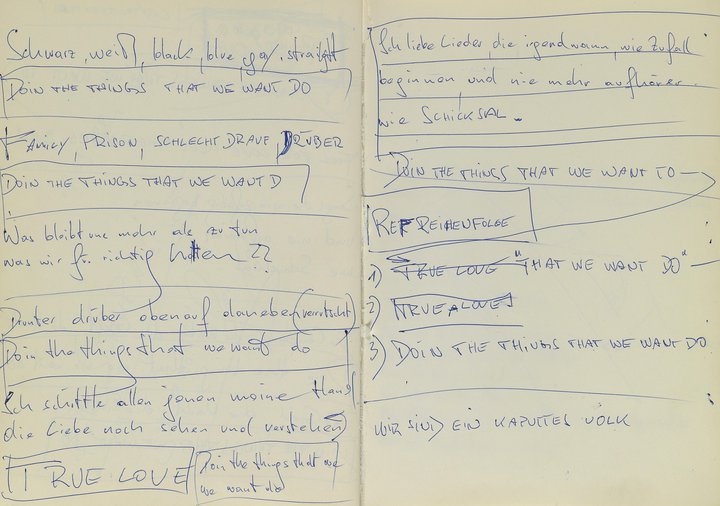 Schwarz, weiß, black, blue, gay, straight
DOIN THE THINGS THAT WE WANT DO
FAMILY, PRISON, SCHLECHT DRAUF, DRÜBER
DOIN THE THINGS THAT WE WANT D
Was bleibt uns mehr als zu tun
was wir für richtig halten??
Drunter drüber obenauf daneben (verrutscht)
Doin the things that we want do
Ich schüttle allen jenen meine Hand
die Liebe noch sehen und verstehen
TRUE LOVE
Doin the things that we
we want do
Ich liebe Lieder die irgendwann, wie Zufall
beginnen und nie mehr aufhören.
wie SCHICKSAL.
DOIN THE THINGS THAT WE WANT TO
REF REIHENFOLGE
1) TRUE LOVE "THAT WE WANT DO"
2) TRUE LOVE
3) DOIN THE THINGS THAT WE WANT DO
WIR SIND EIN KAPUTTES VOLK